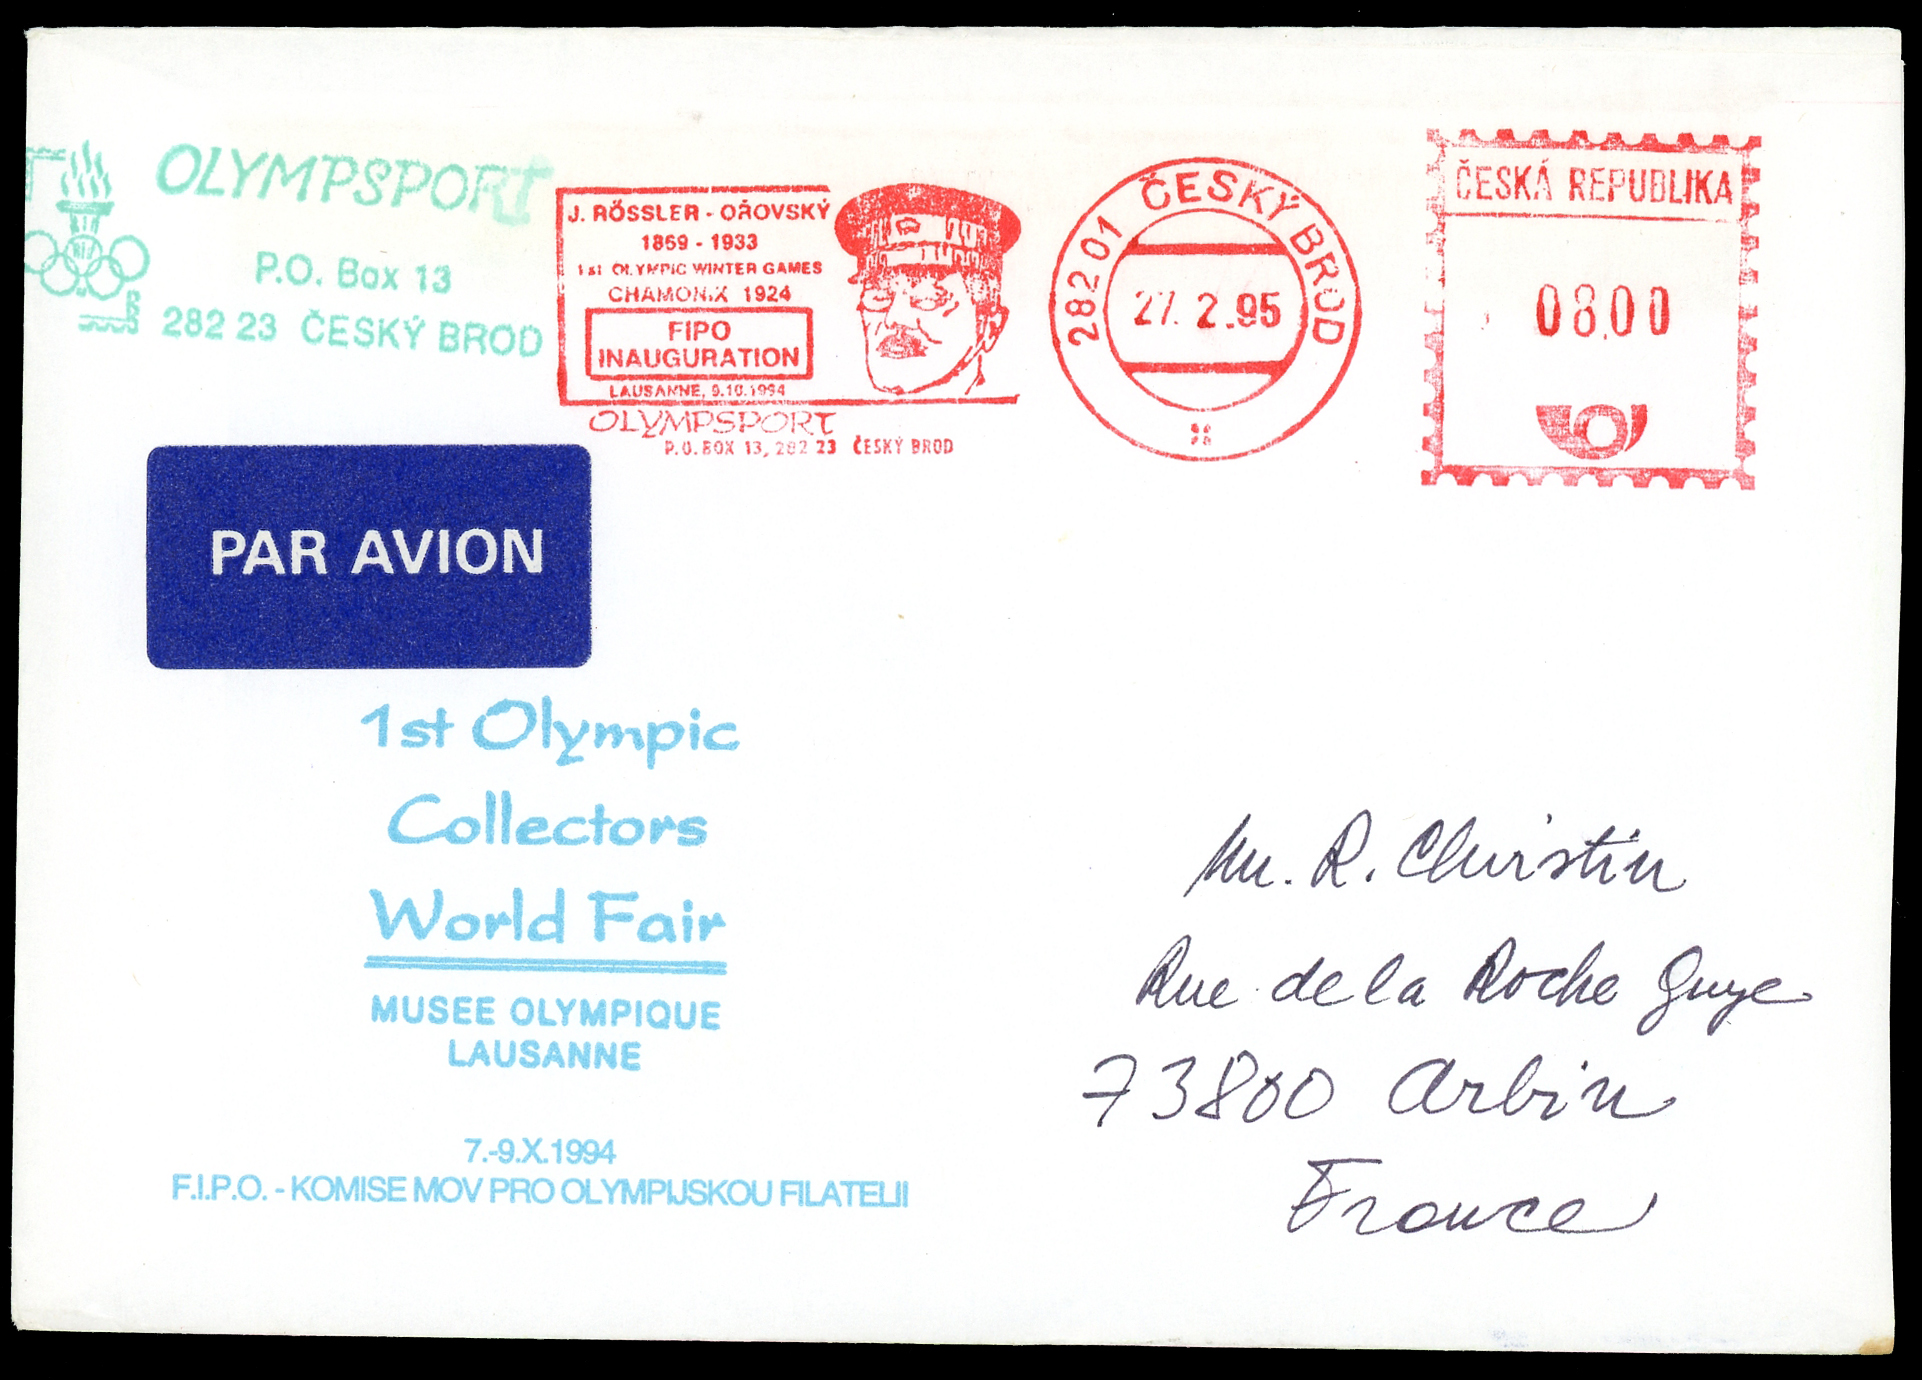 OLYMPSPORT
P.O. Box 13
282 23 ČESKÝ BROD
J. RÖSSLER - OŘOVSKÝ
1869 - 1933
1st OLYMPIC WINTER GAMES
CHAMONIX 1924
FIPO
INAUGURATION
LAUSANNE, 9.10.1994
OLYMPSPORT
P.O. BOX 13, 282 23 ČESKÝ BROD
282 01 ČESKÝ BROD
27. 2.95
ČESKÁ REPUBLIKA
08,00
PAR AVION
1st Olympic
Collectors
World Fair
MUSEE OLYMPIQUE
LAUSANNE
7.-9.X.1994
F.I.P.O. - KOMISE MOV PRO OLYMPIJSKOU FILATELII
Mr. R. Christin
Rue de la Roche Guye
73800 Arbin
France